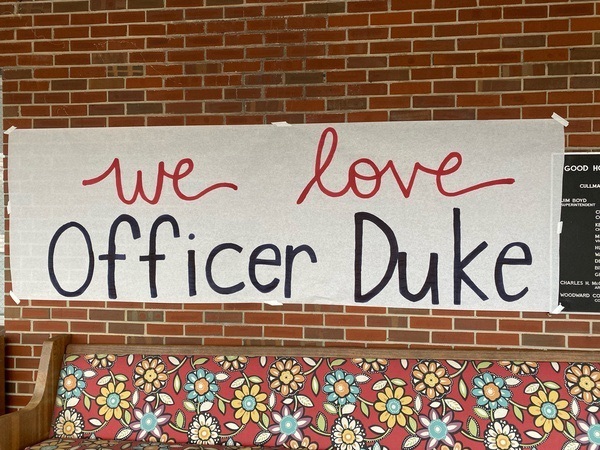 we love
Officer Duke
GOOD HO
CULLMA
JIM BOYD
SUPERINTENDENT
CHARLES H. Mc
WOODWARD CO